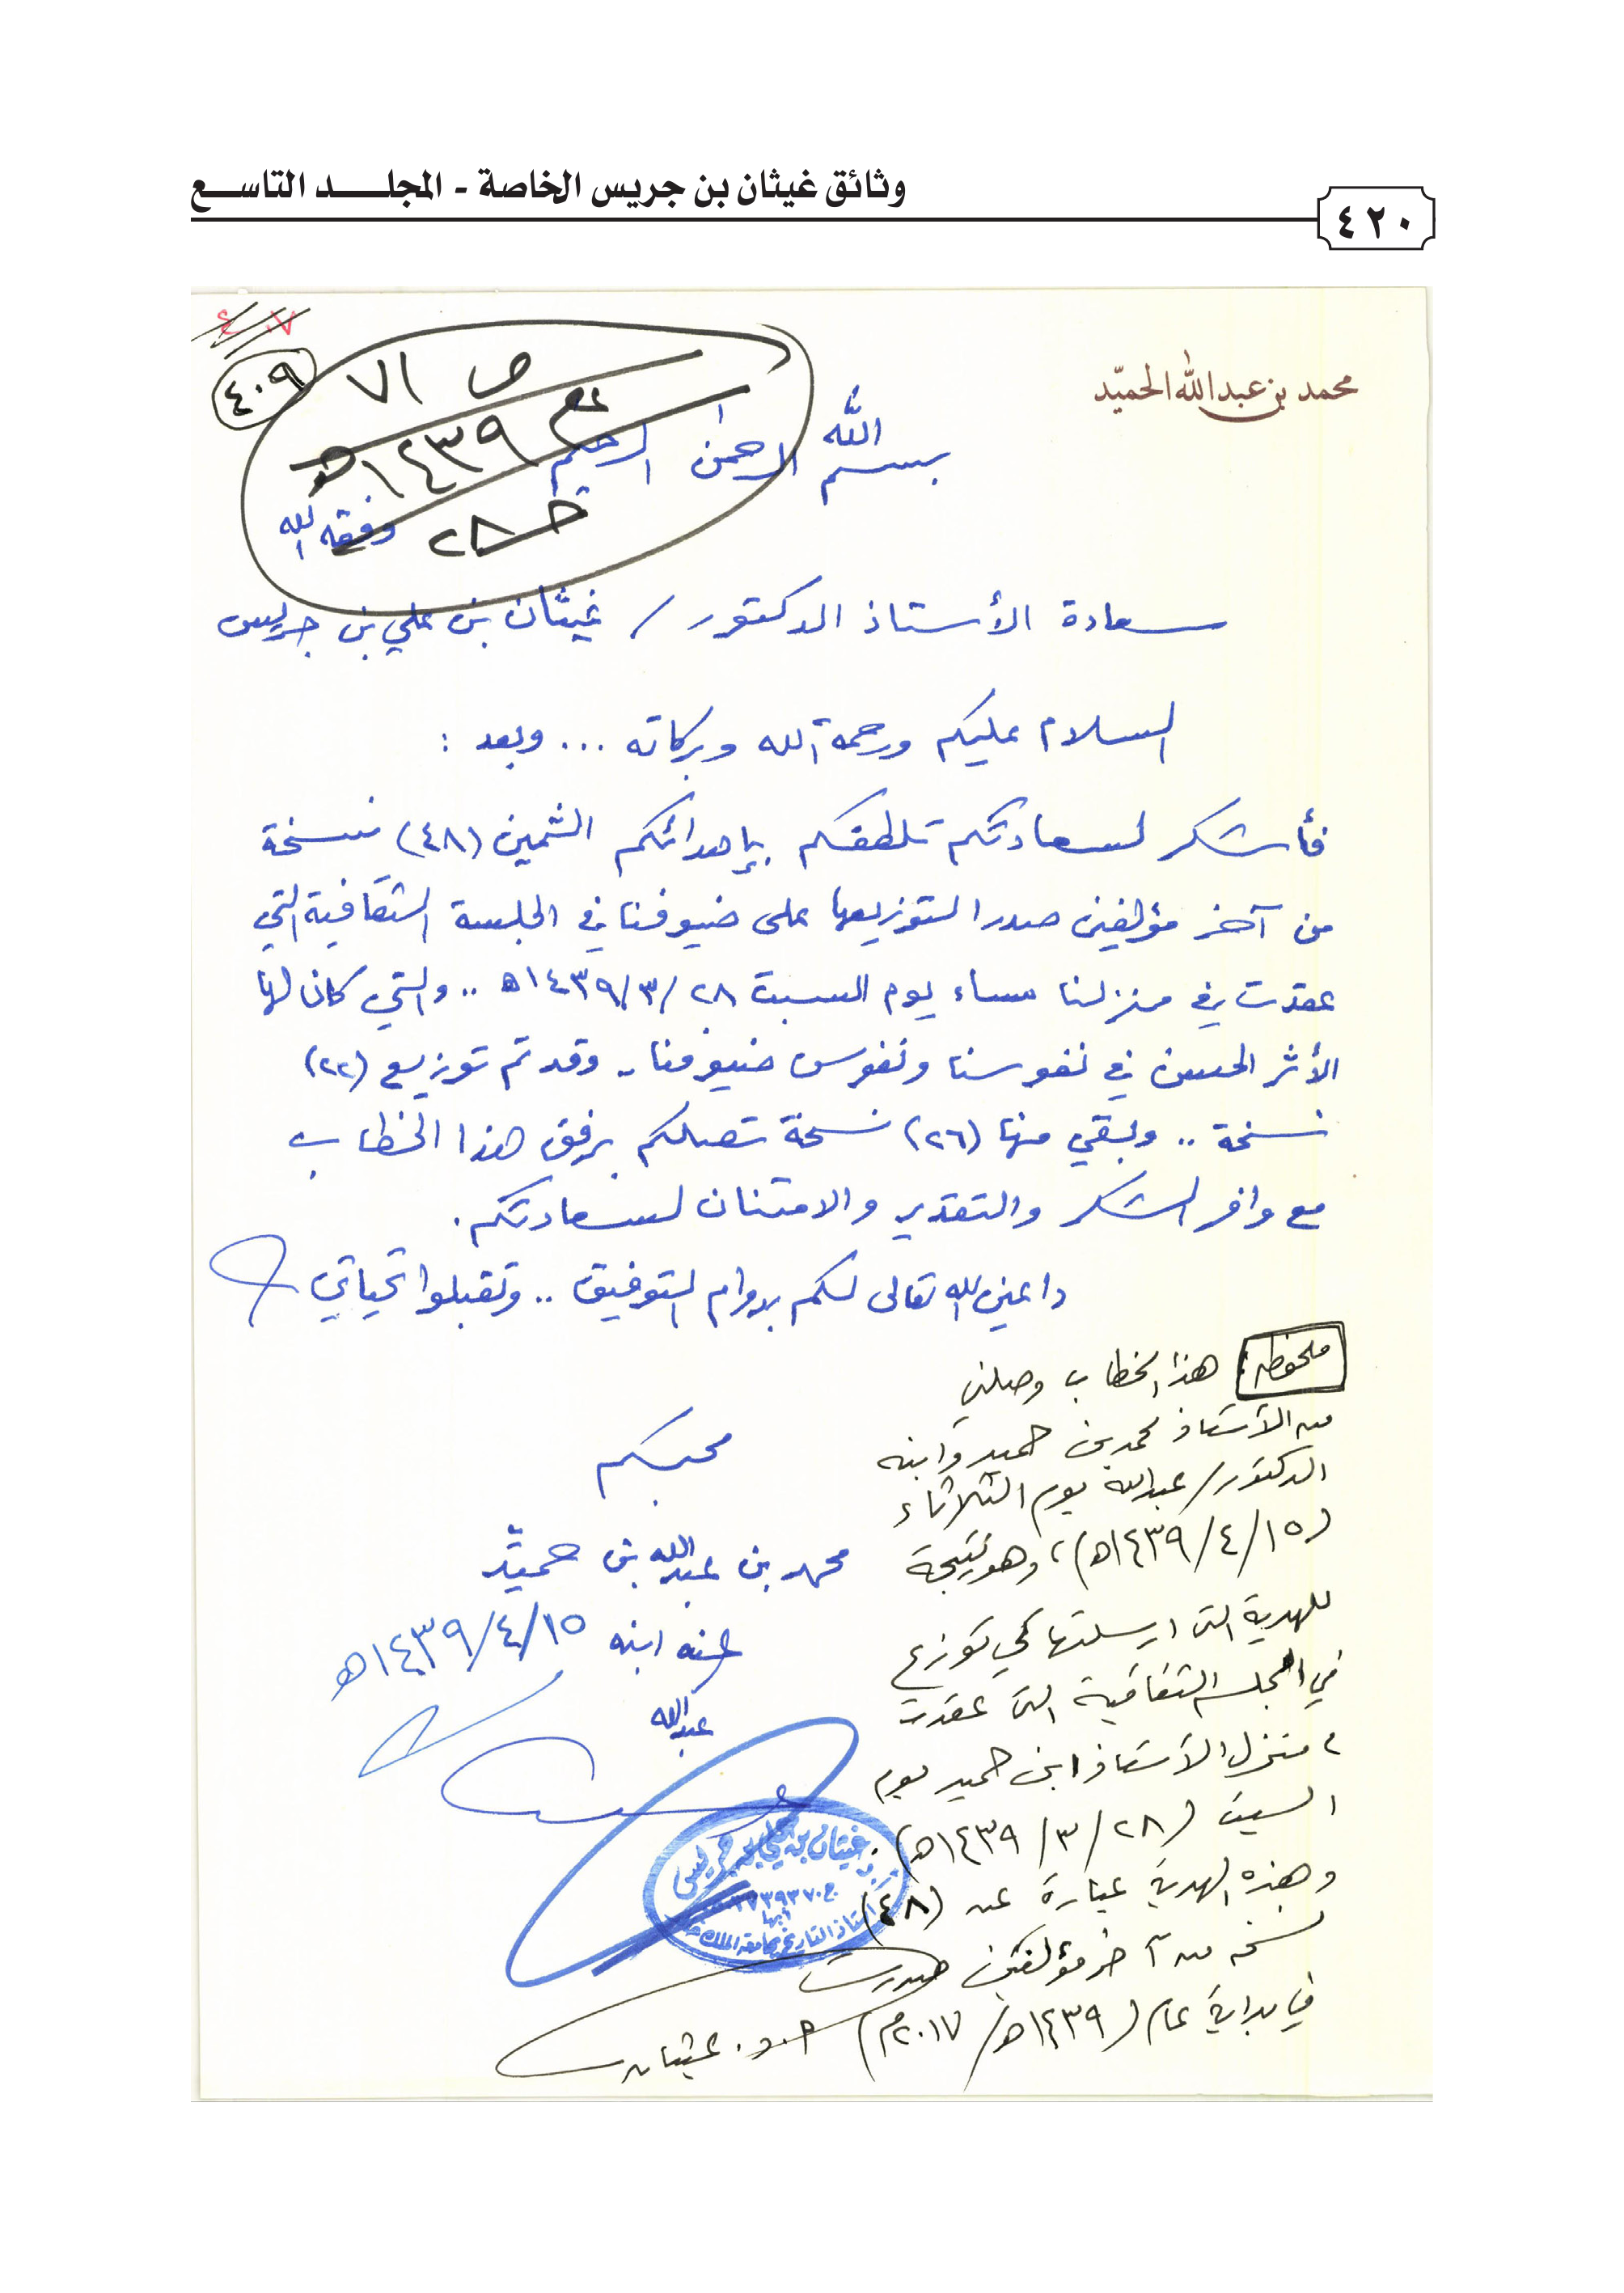 وثائق غيثان بن جريس الخاصة - المجلد التاسع
٤٢٠
٤٠٧
٤٠٩
ص ٧١
ع
١٤٣٩هـ
٢٨
محمد بن عبدالله الحميّد
بسم الله الرحمن الرحيم
وفقه الله
سعادة الأستاذ الدكتور / غيثان بن علي بن جريس
السلام عليكم ورحمة الله وبركاته ... وبعد :
فأشكر لسعادتكم تلطفكم بإهدائكم الثمين (٤٨) نسخة
من آخر مؤلفين صدرا لتوزيعها على ضيوفنا في الجلسة الثقافية التي
عقدت في منزلنا مساء يوم السبت ٢٨/٣/١٤٣٩هـ .. والتي كان لها
الأثر الحسن في نفوسنا ونفوس ضيوفنا .. وقد تم توزيع (٢٢)
نسخة .. وبقي منها (٢٦) نسخة تصلكم برفق هذا الخطاب
مع وافر الشكر والتقدير والامتنان لسعادتكم .
داعين الله تعالى لكم بدوام التوفيق .. وتقبلوا تحياتي
محبكم
محمد بن عبدالله بن حميّد
عنه ابنه ١٥/٤/١٤٣٩هـ
عبدالله
ملحوظه: هذا الخطاب وصلني
من الأستاذ محمد بن حميد وابنه
الدكتور/ عبدالله يوم الثلاثاء
(١٥/٤/١٤٣٩هـ)، وهو نتيجة
للهدية التي ارسلتها كي توزع
في الجلسة الثقافية التي عقدت
في منزل الأستاذ ابن حميد يوم
السبت (٢٨/٣/١٤٣٩هـ).
وهذه الهدية عبارة عن (٤٨)
نسخه من آخر مؤلفين صدرت
في بداية عام (١٤٣٩هـ/٢٠١٧م) أ.د. غيثان
غيثان بن علي بن جريس
أبها
أستاذ التاريخ بجامعة الملك